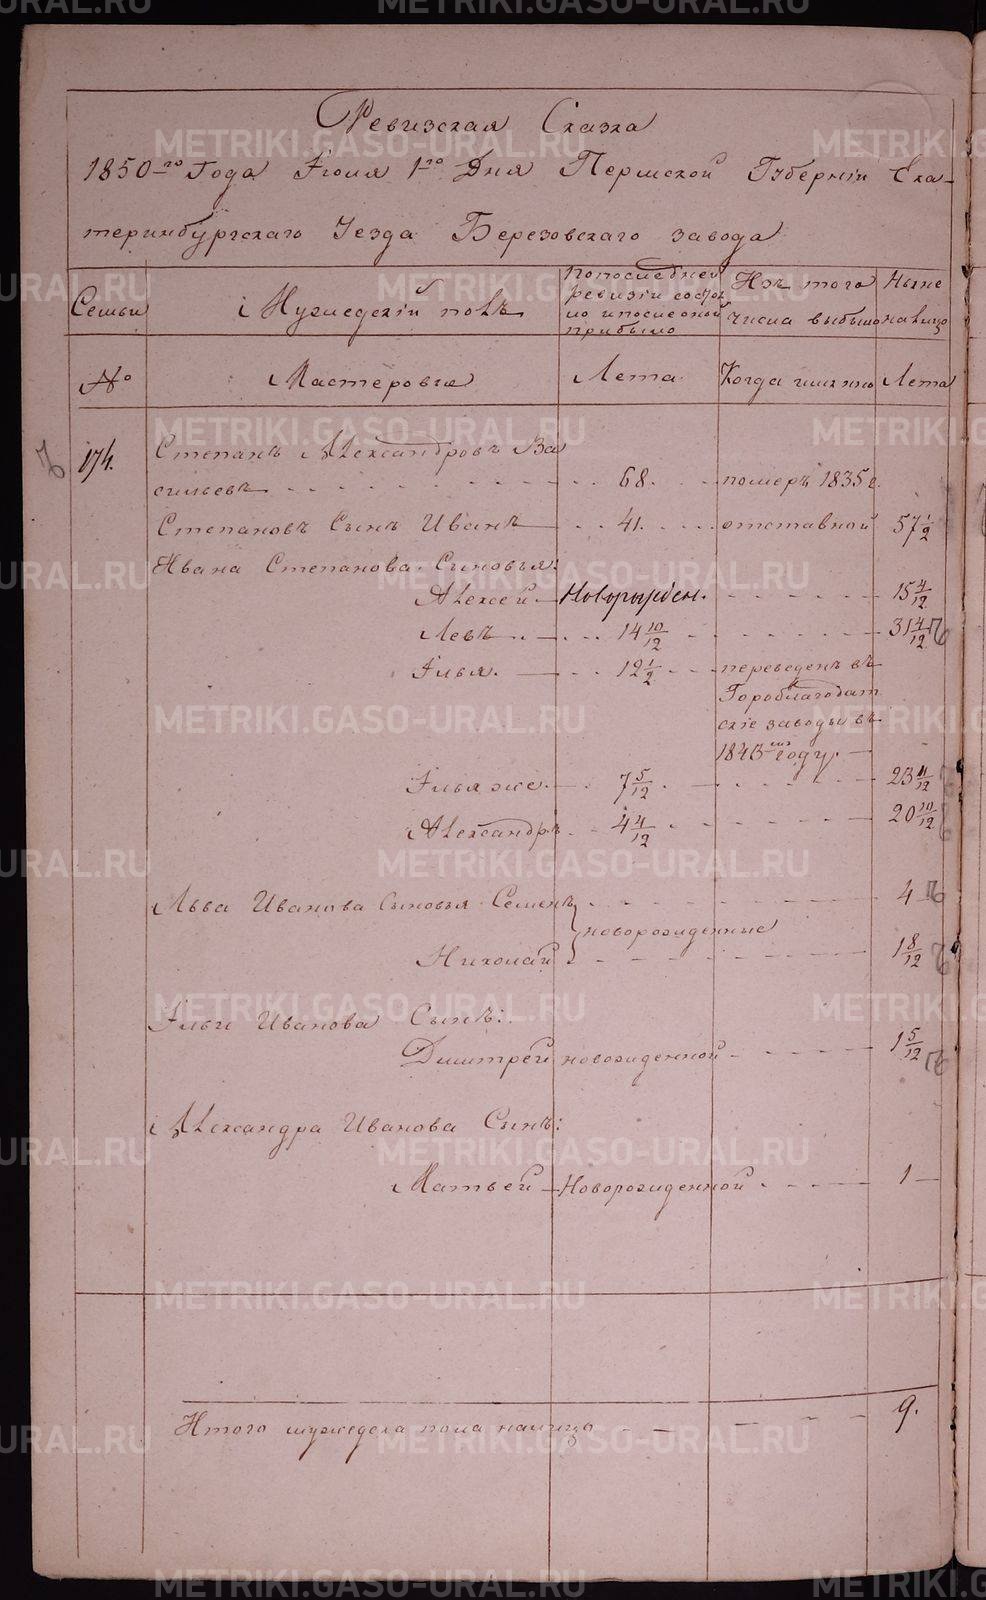 Ревизская Сказка
1850-го Года Iюля 1го Дня Пермской Губернiи Ека-
теринбургскаго Уезда Березовскаго завода
Семьи
Мужеский полъ
По последней ревизiи состоя
ло и после оной
прибыло
Изъ того
числа выбыло
Ныне
на лицо
№
Мастеровыя
Лета
Когда имянно
Лета
174.
Степанъ Александровъ Ва
сильевъ 68. померъ 1835 г.
Степановъ Сынъ Иванъ 41. отставной 57 1/2
Ивана Степанова Сыновья:
Алексей Новорожден. 15 4/12
Левъ 14 10/12 31 4/12
Iлья. 12 1/2 переведенъ въ
Гороблагодат
скiе заводы въ
1843 мъ году.
Iлья же 7 5/12 23 11/12
Александръ 4 4/12 20 10/12
Льва Иванова Сыновья Семенъ 4
новорожденные
Николай 1 8/12
Iльи Иванова Сынъ:
Дмитрей новожиденной 1 5/12
Александра Иванова Сынъ:
Матвей Новорожиденной 1
Итого мужеска пола налицо 9.
METRIKI.GASO-URAL.RU